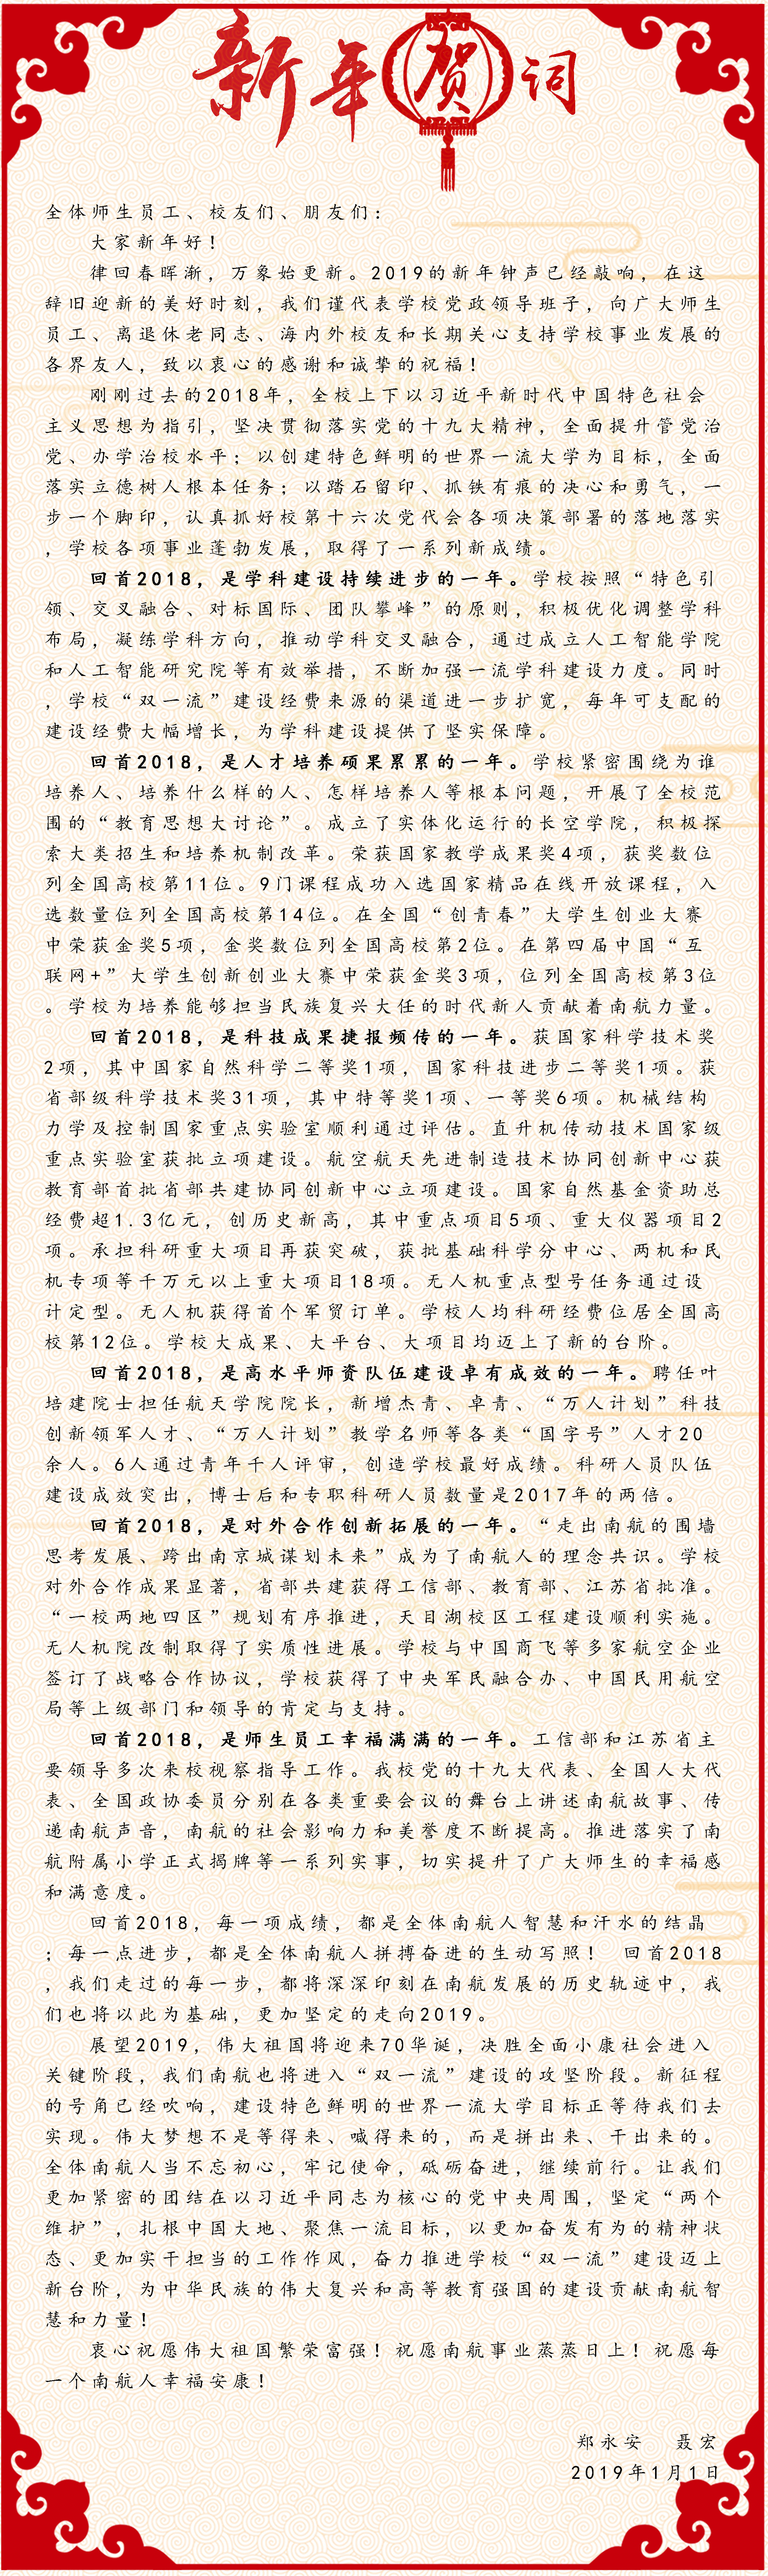 新年贺词
全体师生员工、校友们、朋友们：
大家新年好！
律回春晖渐，万象始更新。2019的新年钟声已经敲响，在这
辞旧迎新的美好时刻，我们谨代表学校党政领导班子，向广大师生
员工、离退休老同志、海内外校友和长期关心支持学校事业发展的
各界友人，致以衷心的感谢和诚挚的祝福！
刚刚过去的2018年，全校上下以习近平新时代中国特色社会
主义思想为指引，坚决贯彻落实党的十九大精神，全面提升管党治
党、办学治校水平；以创建特色鲜明的世界一流大学为目标，全面
落实立德树人根本任务；以踏石留印、抓铁有痕的决心和勇气，一
步一个脚印，认真抓好校第十六次党代会各项决策部署的落地落实
，学校各项事业蓬勃发展，取得了一系列新成绩。
回首2018，是学科建设持续进步的一年。学校按照“特色引
领、交叉融合、对标国际、团队攀峰”的原则，积极优化调整学科
布局，凝练学科方向，推动学科交叉融合，通过成立人工智能学院
和人工智能研究院等有效举措，不断加强一流学科建设力度。同时
，学校“双一流”建设经费来源的渠道进一步扩宽，每年可支配的
建设经费大幅增长，为学科建设提供了坚实保障。
回首2018，是人才培养硕果累累的一年。学校紧密围绕为谁
培养人、培养什么样的人、怎样培养人等根本问题，开展了全校范
围的“教育思想大讨论”。成立了实体化运行的长空学院，积极探
索大类招生和培养机制改革。荣获国家教学成果奖4项，获奖数位
列全国高校第11位。9门课程成功入选国家精品在线开放课程，入
选数量位列全国高校第14位。在全国“创青春”大学生创业大赛
中荣获金奖5项，金奖数位列全国高校第2位。在第四届中国“互
联网+”大学生创新创业大赛中荣获金奖3项，位列全国高校第3位
。学校为培养能够担当民族复兴大任的时代新人贡献着南航力量。
回首2018，是科技成果捷报频传的一年。获国家科学技术奖
2项，其中国家自然科学二等奖1项，国家科技进步二等奖1项。获
省部级科学技术奖31项，其中特等奖1项、一等奖6项。机械结构
力学及控制国家重点实验室顺利通过评估。直升机传动技术国家级
重点实验室获批立项建设。航空航天先进制造技术协同创新中心获
教育部首批省部共建协同创新中心立项建设。国家自然基金资助总
经费超1.3亿元，创历史新高，其中重点项目5项、重大仪器项目2
项。承担科研重大项目再获突破，获批基础科学分中心、两机和民
机专项等千万元以上重大项目18项。无人机重点型号任务通过设
计定型。无人机获得首个军贸订单。学校人均科研经费位居全国高
校第12位。学校大成果、大平台、大项目均迈上了新的台阶。
回首2018，是高水平师资队伍建设卓有成效的一年。聘任叶
培建院士担任航天学院院长，新增杰青、卓青、“万人计划”科技
创新领军人才、“万人计划”教学名师等各类“国字号”人才20
余人。6人通过青年千人评审，创造学校最好成绩。科研人员队伍
建设成效突出，博士后和专职科研人员数量是2017年的两倍。
回首2018，是对外合作创新拓展的一年。“走出南航的围墙
思考发展、跨出南京城谋划未来”成为了南航人的理念共识。学校
对外合作成果显著，省部共建获得工信部、教育部、江苏省批准。
“一校两地四区”规划有序推进，天目湖校区工程建设顺利实施。
无人机院改制取得了实质性进展。学校与中国商飞等多家航空企业
签订了战略合作协议，学校获得了中央军民融合办、中国民用航空
局等上级部门和领导的肯定与支持。
回首2018，是师生员工幸福满满的一年。工信部和江苏省主
要领导多次来校视察指导工作。我校党的十九大代表、全国人大代
表、全国政协委员分别在各类重要会议的舞台上讲述南航故事、传
递南航声音，南航的社会影响力和美誉度不断提高。推进落实了南
航附属小学正式揭牌等一系列实事，切实提升了广大师生的幸福感
和满意度。
回首2018，每一项成绩，都是全体南航人智慧和汗水的结晶
；每一点进步，都是全体南航人拼搏奋进的生动写照！ 回首2018
，我们走过的每一步，都将深深印刻在南航发展的历史轨迹中，我
们也将以此为基础，更加坚定的走向2019。
展望2019，伟大祖国将迎来70华诞，决胜全面小康社会进入
关键阶段，我们南航也将进入“双一流”建设的攻坚阶段。新征程
的号角已经吹响，建设特色鲜明的世界一流大学目标正等待我们去
实现。伟大梦想不是等得来、喊得来的，而是拼出来、干出来的。
全体南航人当不忘初心，牢记使命，砥砺奋进，继续前行。让我们
更加紧密的团结在以习近平同志为核心的党中央周围，坚定“两个
维护”，扎根中国大地、聚焦一流目标，以更加奋发有为的精神状
态、更加实干担当的工作作风，奋力推进学校“双一流”建设迈上
新台阶，为中华民族的伟大复兴和高等教育强国的建设贡献南航智
慧和力量！
衷心祝愿伟大祖国繁荣富强！祝愿南航事业蒸蒸日上！祝愿每
一个南航人幸福安康！
郑永安 聂宏
2019年1月1日